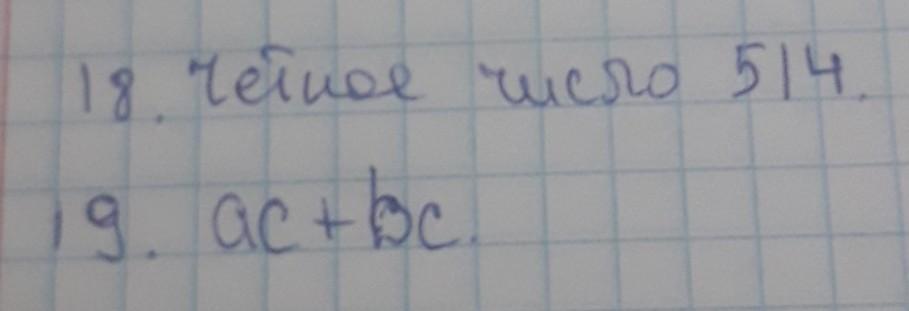 18. Чётное число 514.
19. ac+bc.